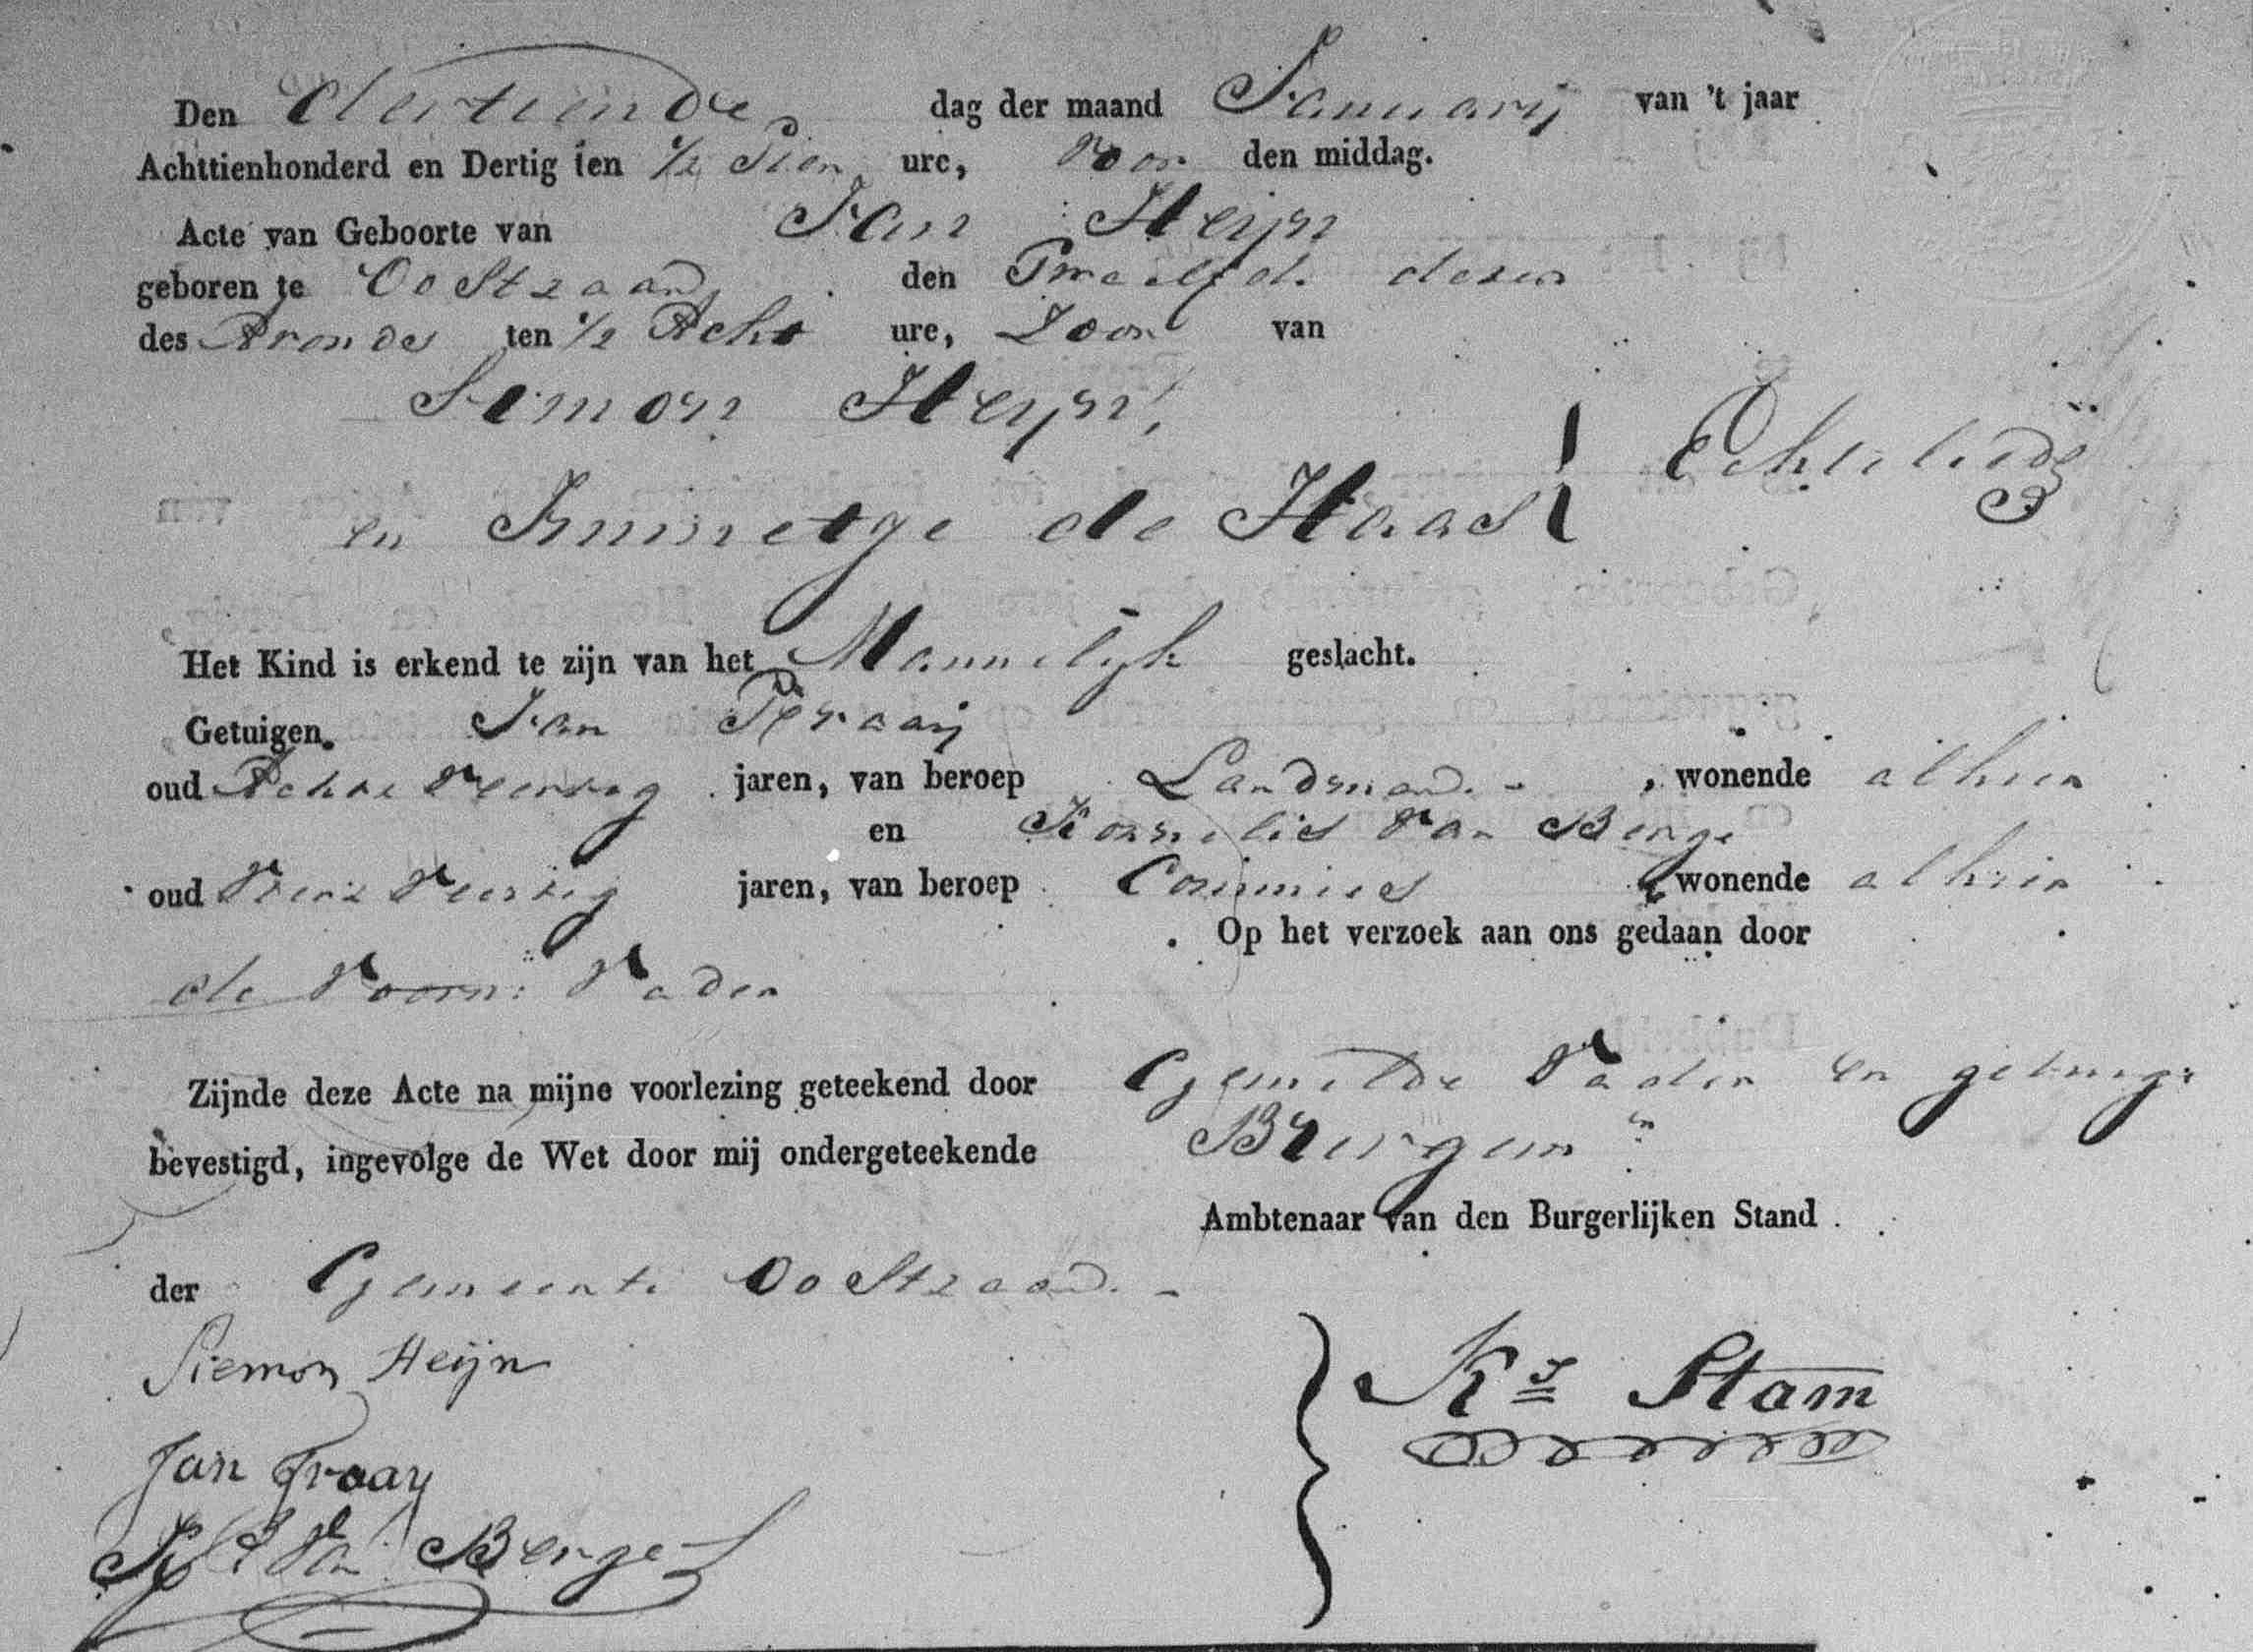 Den dertiende dag der maand Januarij van 't jaar
Achttienhonderd en Dertig ten 1/2 Tien ure, Voor den middag.
Acte van Geboorte van Jan Heijn
geboren te Oostzaan den Twaelfde deser
des Avonds ten 1/2 Acht ure, Zoon van
Simon Heijn,
en de Haas Echtelieden
Het Kind is erkend te zijn van het Mannelijk geslacht.
Getuigen. Jan
oud Achte Veertig jaren, van beroep Landman - , wonende alhier
en Kornelis Van Berge
oud Veertig jaren, van beroep Commies , wonende alhier
Op het verzoek aan ons gedaan door
de Voorn: Vader
Zijnde deze Acte na mijne voorlezing geteekend door Gemelde Vader en getuige
bevestigd, ingevolge de Wet door mij ondergeteekende Burgem
Ambtenaar van den Burgerlijken Stand
der Gemeente Oostzaan. -
Siemon Heijn
Ks Stam
Jan Fraay
Van Berge